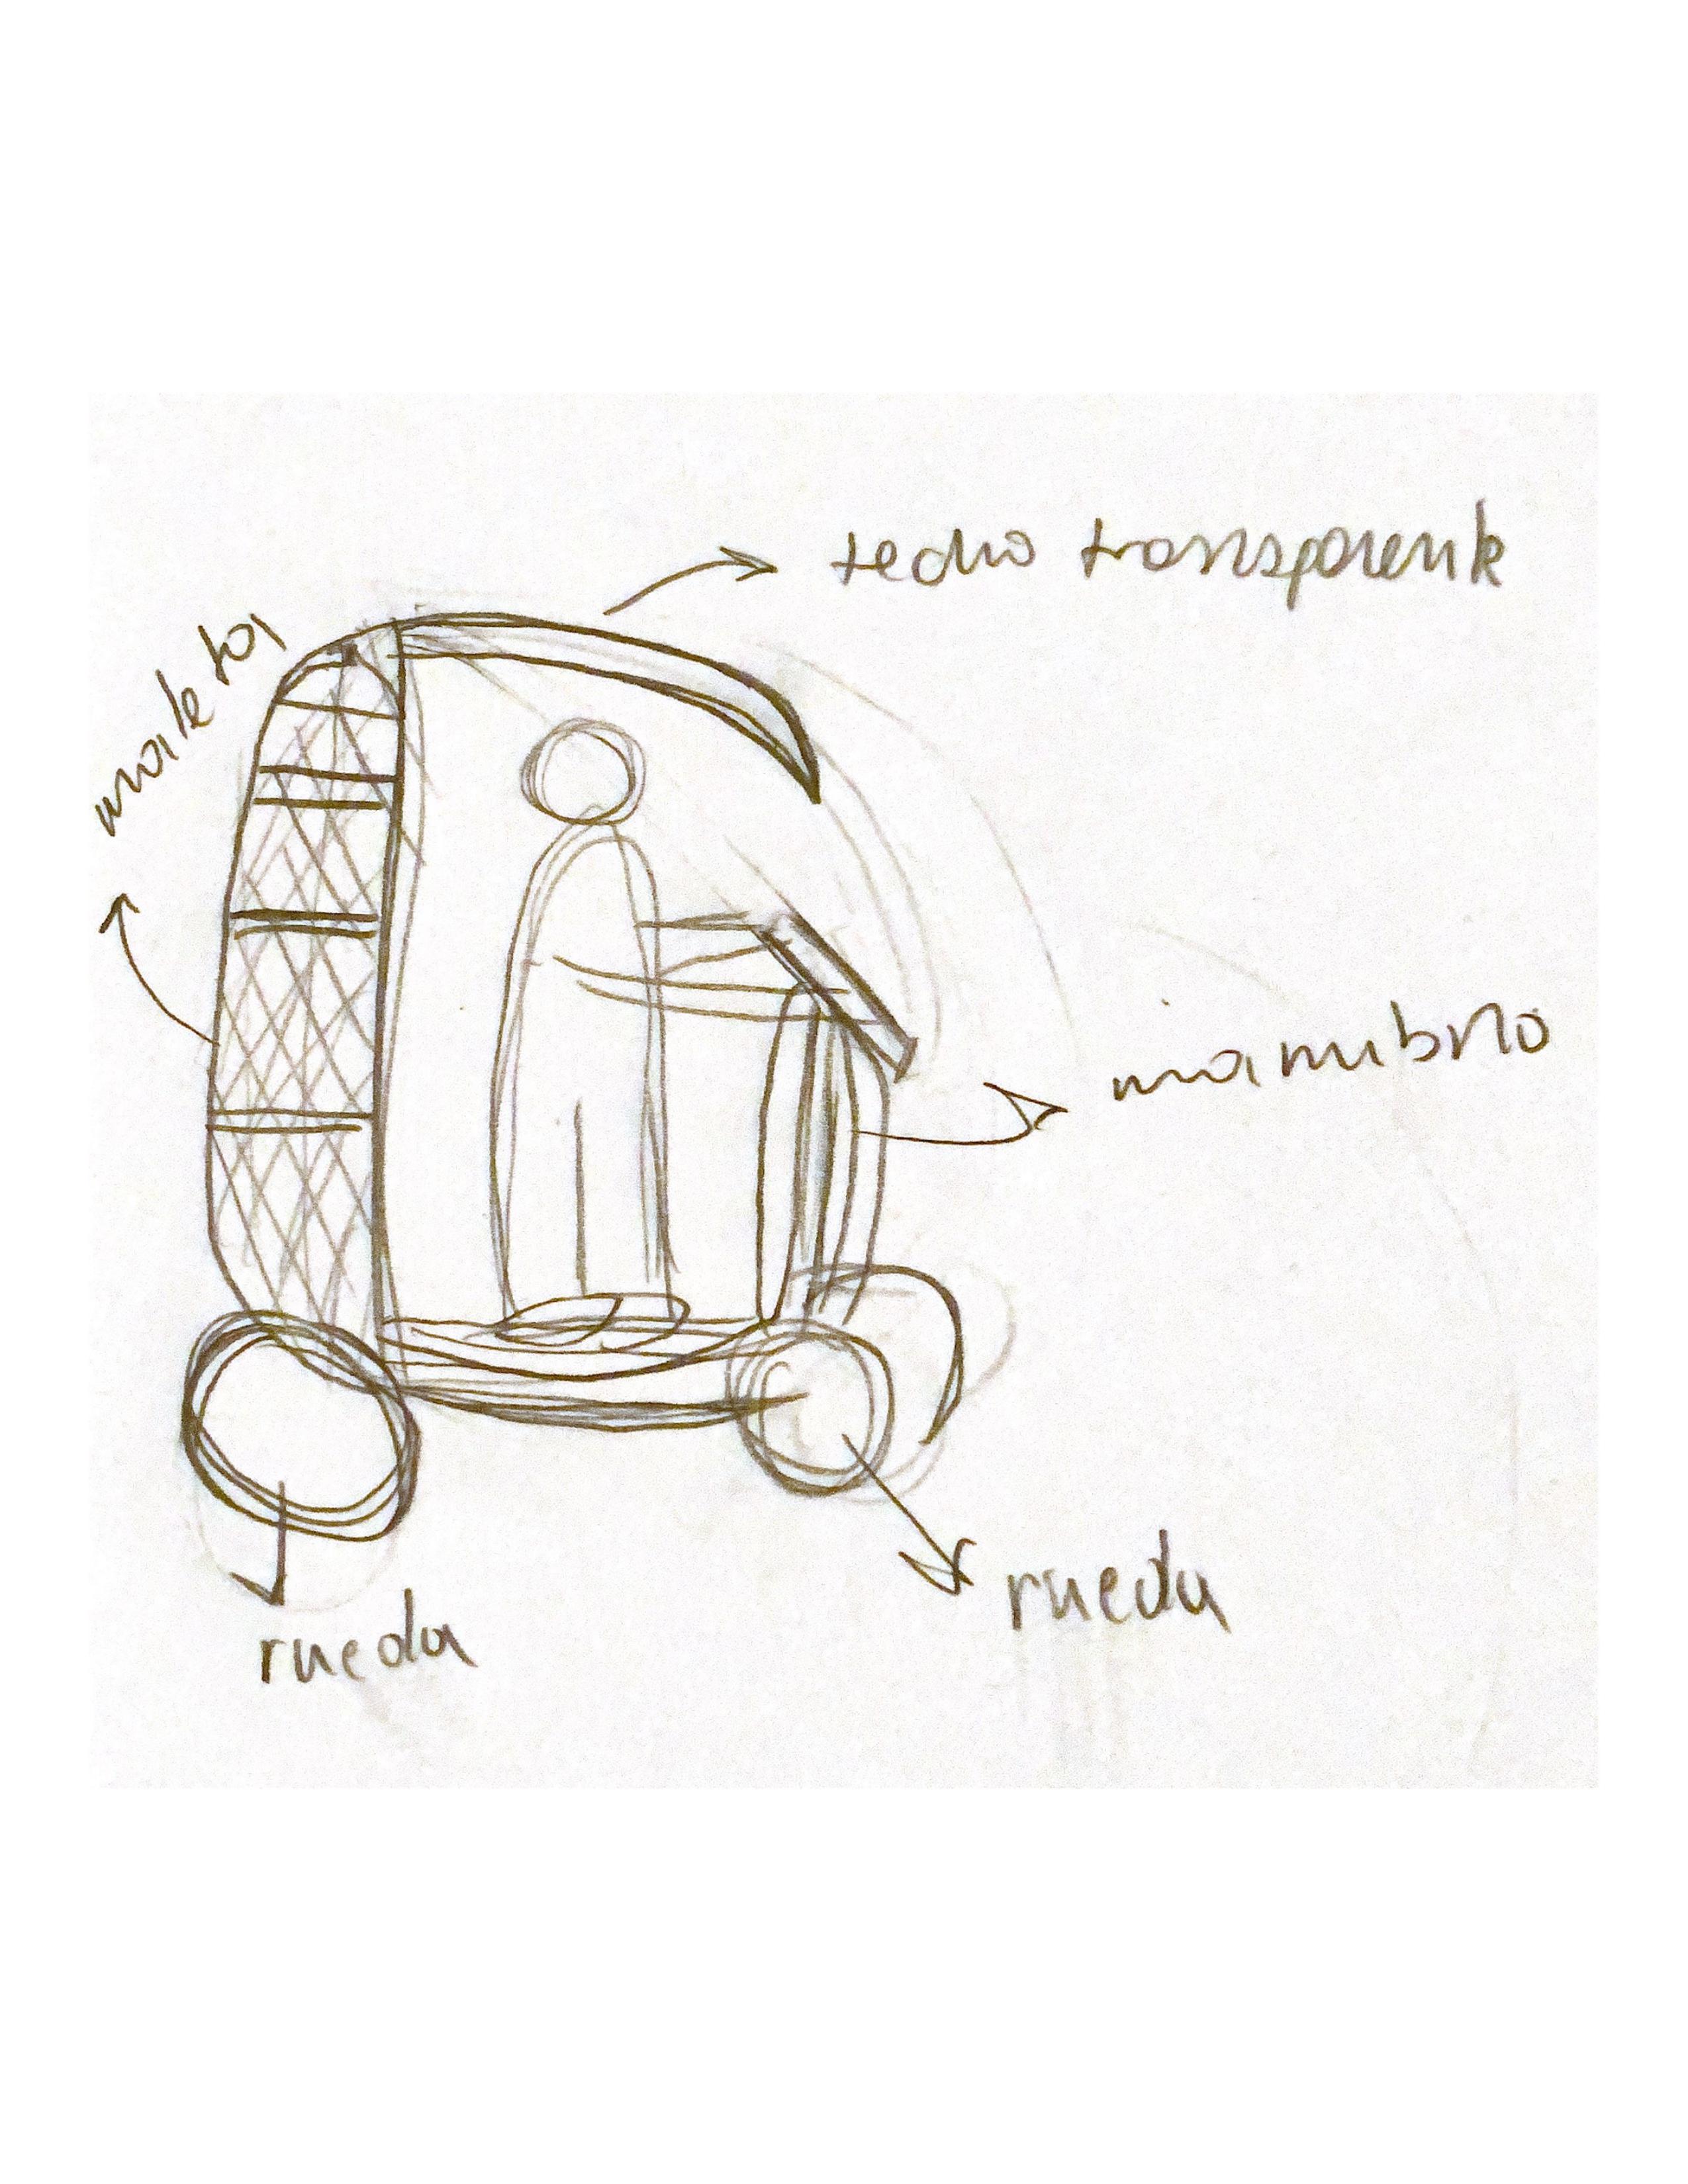 techo transparente
maletas
manubrio
rueda
rueda